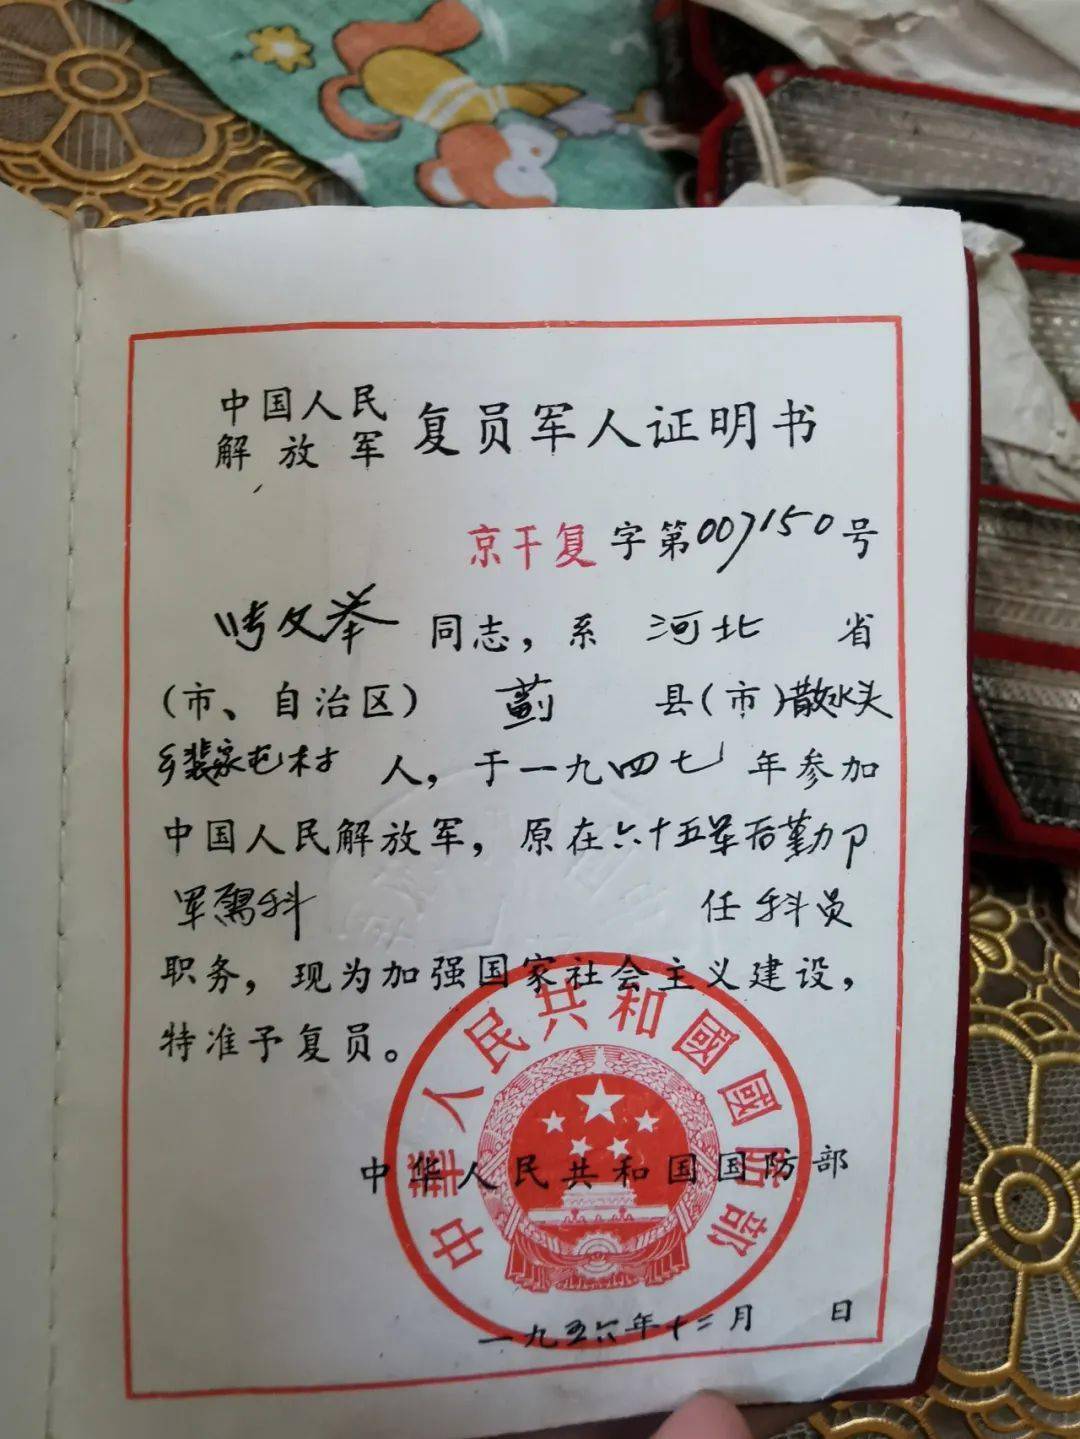 中国人民
解放军
复员军人证明书
京干复字第007150号
文举 同志，系 河北 省
（市、自治区） 蓟 县（市）散水头
乡裴家屯村 人，于一九四七 年参加
中国人民解放军，原在六十五军后勤卩
军需科 任科员
职务，现为加强国家社会主义建设，
特准予复员。
中華人民共和國國防部
中华人民共和国国防部
一九五六年十二月 日